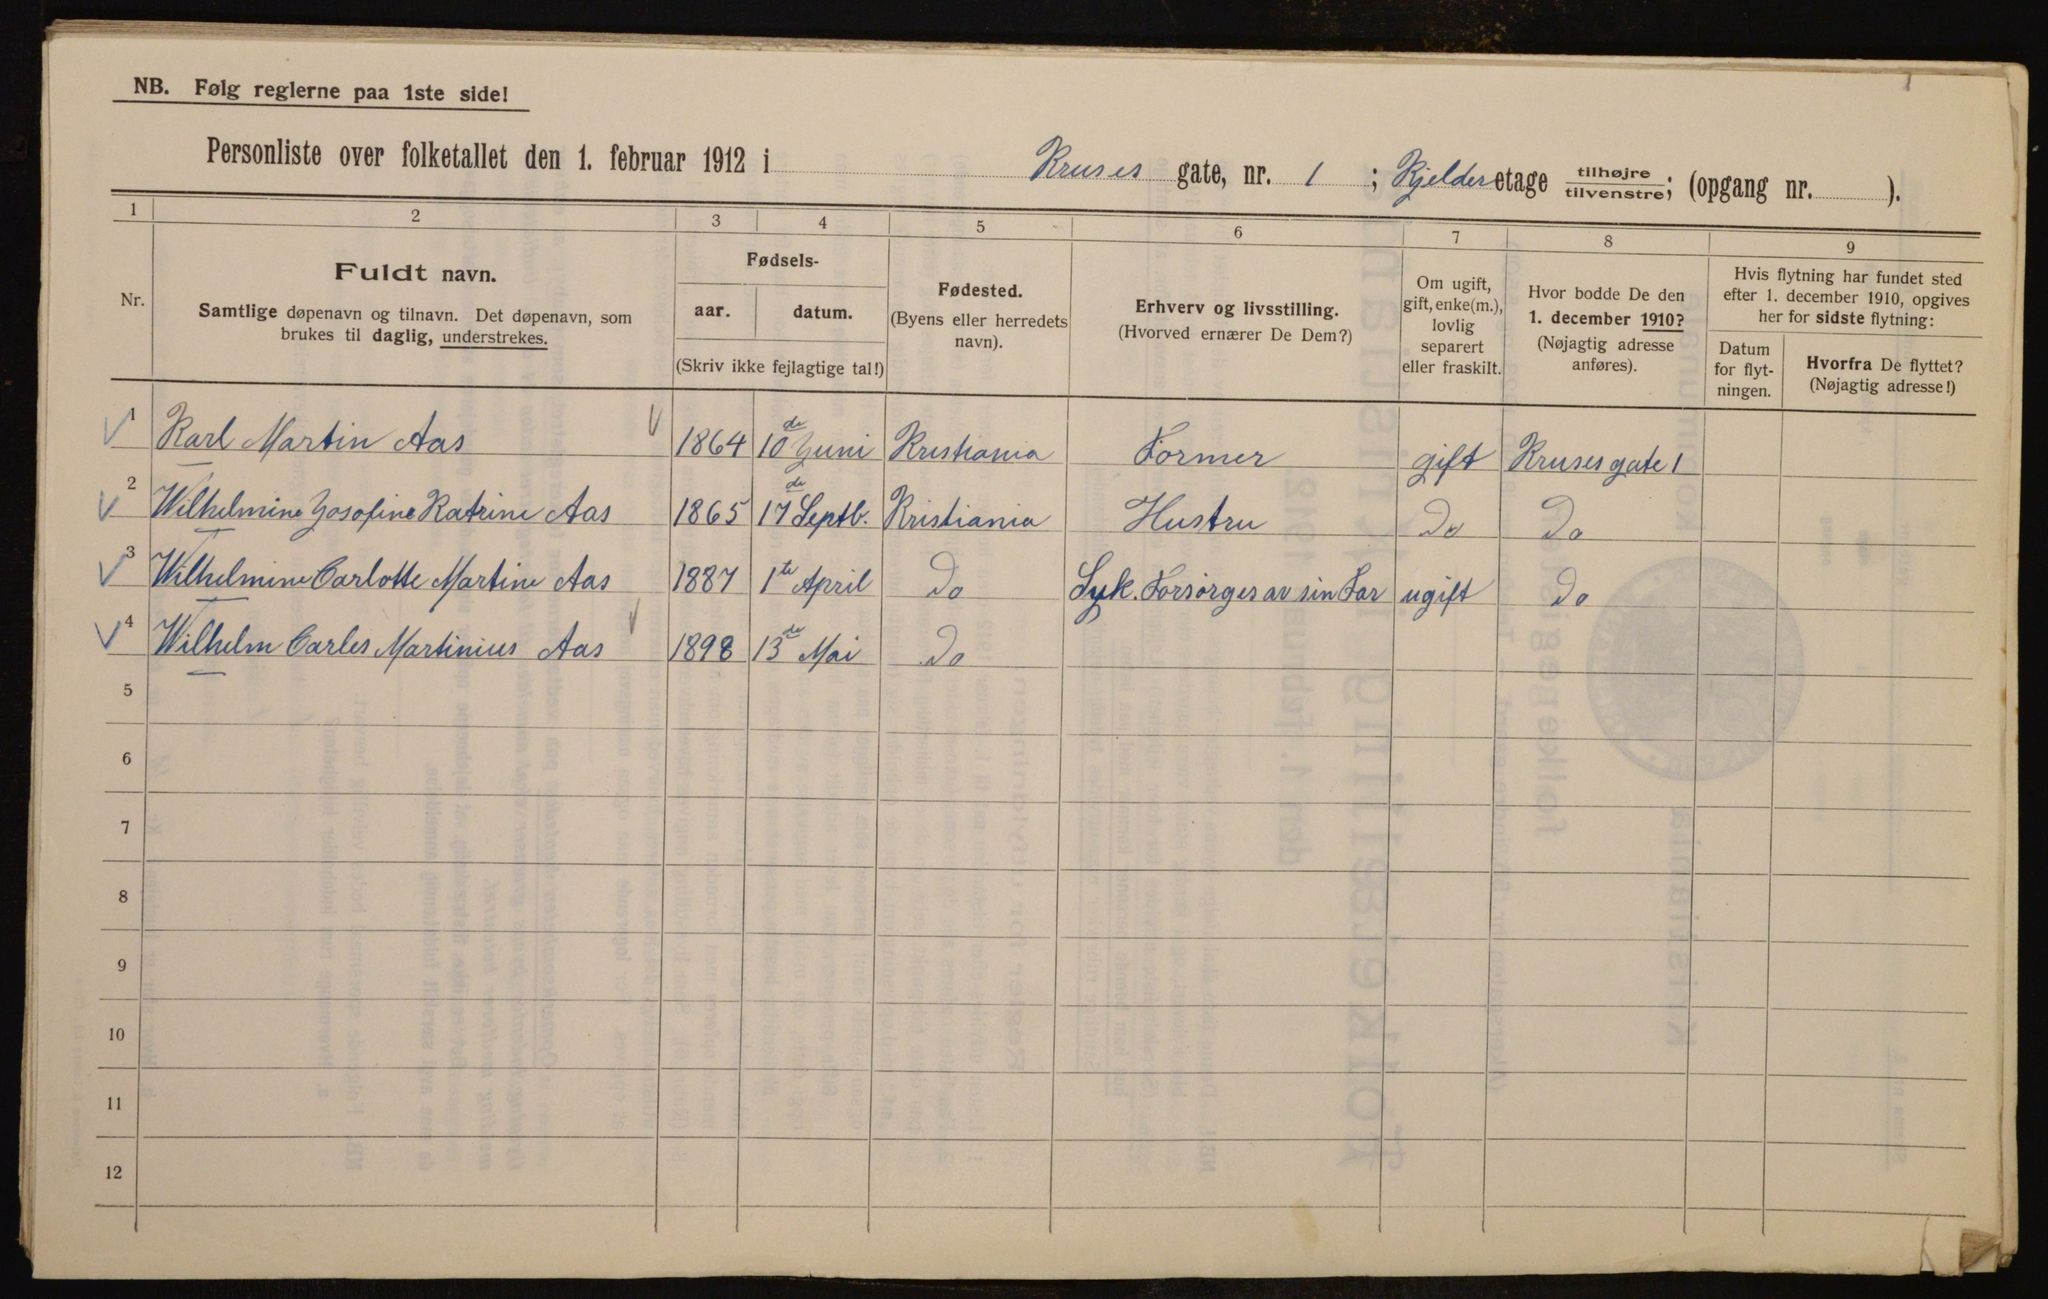 NB. Følg reglerne paa 1ste side!
Personliste over folketallet den 1. februar 1912 i Kruses gate, nr. 1 ; Kjelderetage tilhøjre/tilvenstre; (opgang nr. ).
1 2 3 4 5 6 7 8 9
Nr.
Fuldt navn.
Samtlige døpenavn og tilnavn. Det døpenavn, som
brukes til daglig, understrekes.
Fødsels-
aar. datum.
(Skriv ikke fejlagtige tal!)
Fødested.
(Byens eller herredets
navn).
Erhverv og livsstilling.
(Hvorved ernærer De Dem?)
Om ugift,
gift, enke(m.),
lovlig
separert
eller fraskilt.
Hvor bodde De den
1. december 1910?
(Nøjagtig adresse
anføres).
Hvis flytning har fundet sted
efter 1. december 1910, opgives
her for sidste flytning:
Datum
for flyt-
ningen.
Hvorfra De flyttet?
(Nøjagtig adresse!)
1 Karl Martin Aas 1864 10de Juni Kristiania Former gift Kruses gate 1
2 Wilhelmine Josofine Katrine Aas 1865 17de Septb. Kristiania Hustru Do Do
3 Wilhelmine Carlotte Martine Aas 1887 1te April Do Syk. Forsørges av sin Far ugift Do
4 Wilhelm Carles Martinius Aas 1898 13de Mai Do
5
6
7
8
9
10
11
12